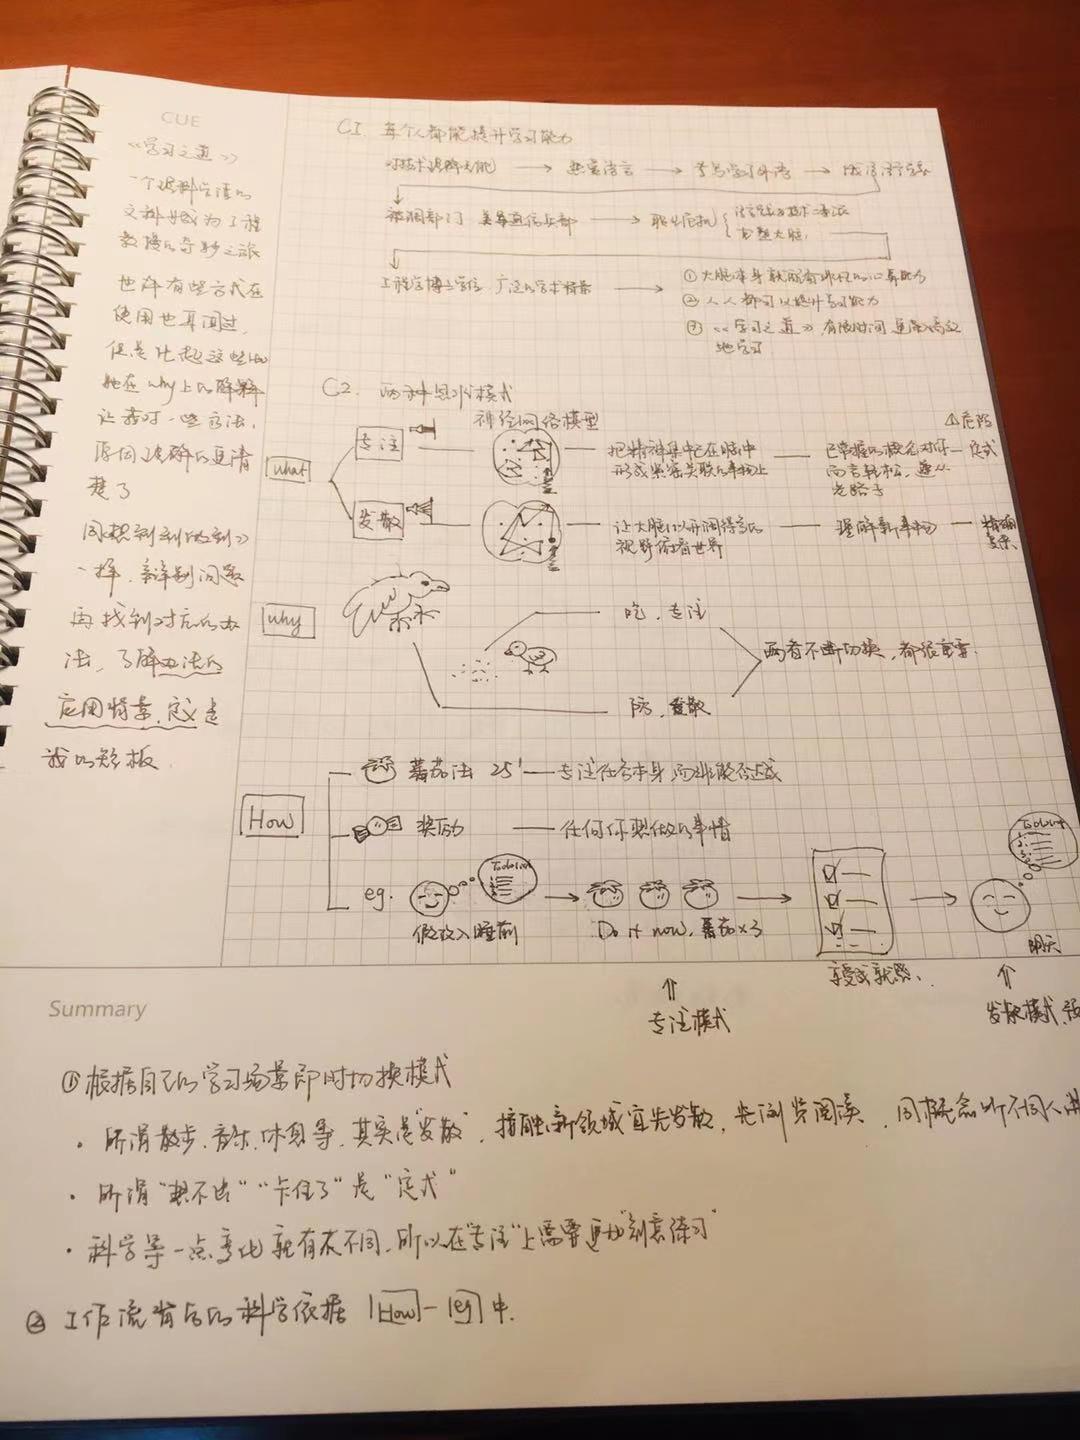 CUE
《学习之道》
一个理科学渣的
文科女成为工程
教授的奇妙之旅
也许有些方式在
使用也耳闻过,
但是比起这些How
她在why上的解释
让我对一些方法,
原因理解的更清
楚了
同想到
一样,辩别问题
再找到对应的办
法,了解办法的
应用情景,定义是
我的短板
C1. 每个人都能提升学习能力
对技术理解无能 → 热爱语言 → 学习外语 →
被调部门 美军通信兵部 → 职业危机 { 重塑大脑
工程学博士学位 广泛的学术背景 → ① 大脑本身就配有非凡的心算能力
② 人人都可以提升学习能力
③ 《学习之道》有限时间更深入高效
地学习
C2. 两种思维模式
what
专注
神经网络模型
把精神集中在脑中
形成紧密关联的事物上
已掌握的概念对你
而言轻松,
老路子
定式
↑危险
发散
让大脑以开阔得多的
视野俯看世界
理解新事物
精确
复杂
why
吃,专注
防,发散
两者不断切换,都很重要.
How
番茄法 25' — 专注任务本身而非能否达成
奖励 — 任何你想做的事情
eg.
Todolist
Todolist
假设入睡前
Do it now, 番茄×3
享受成就感.
明天
⇑
专注模式
⇑
发散模式,
Summary
① 根据自己的学习场景即时切换模式
· 所谓散步、音乐、休息等,其实是“发散”,接触新领域宜先发散,先浏览阅读,同概念听不同人讲
· 所谓“想不出”“卡住了”是“定式”
· 科学等一点变化就有大不同,所以在“专注”上需要更加“刻意练习”
② 工作流背后的科学依据 How - eg 中.